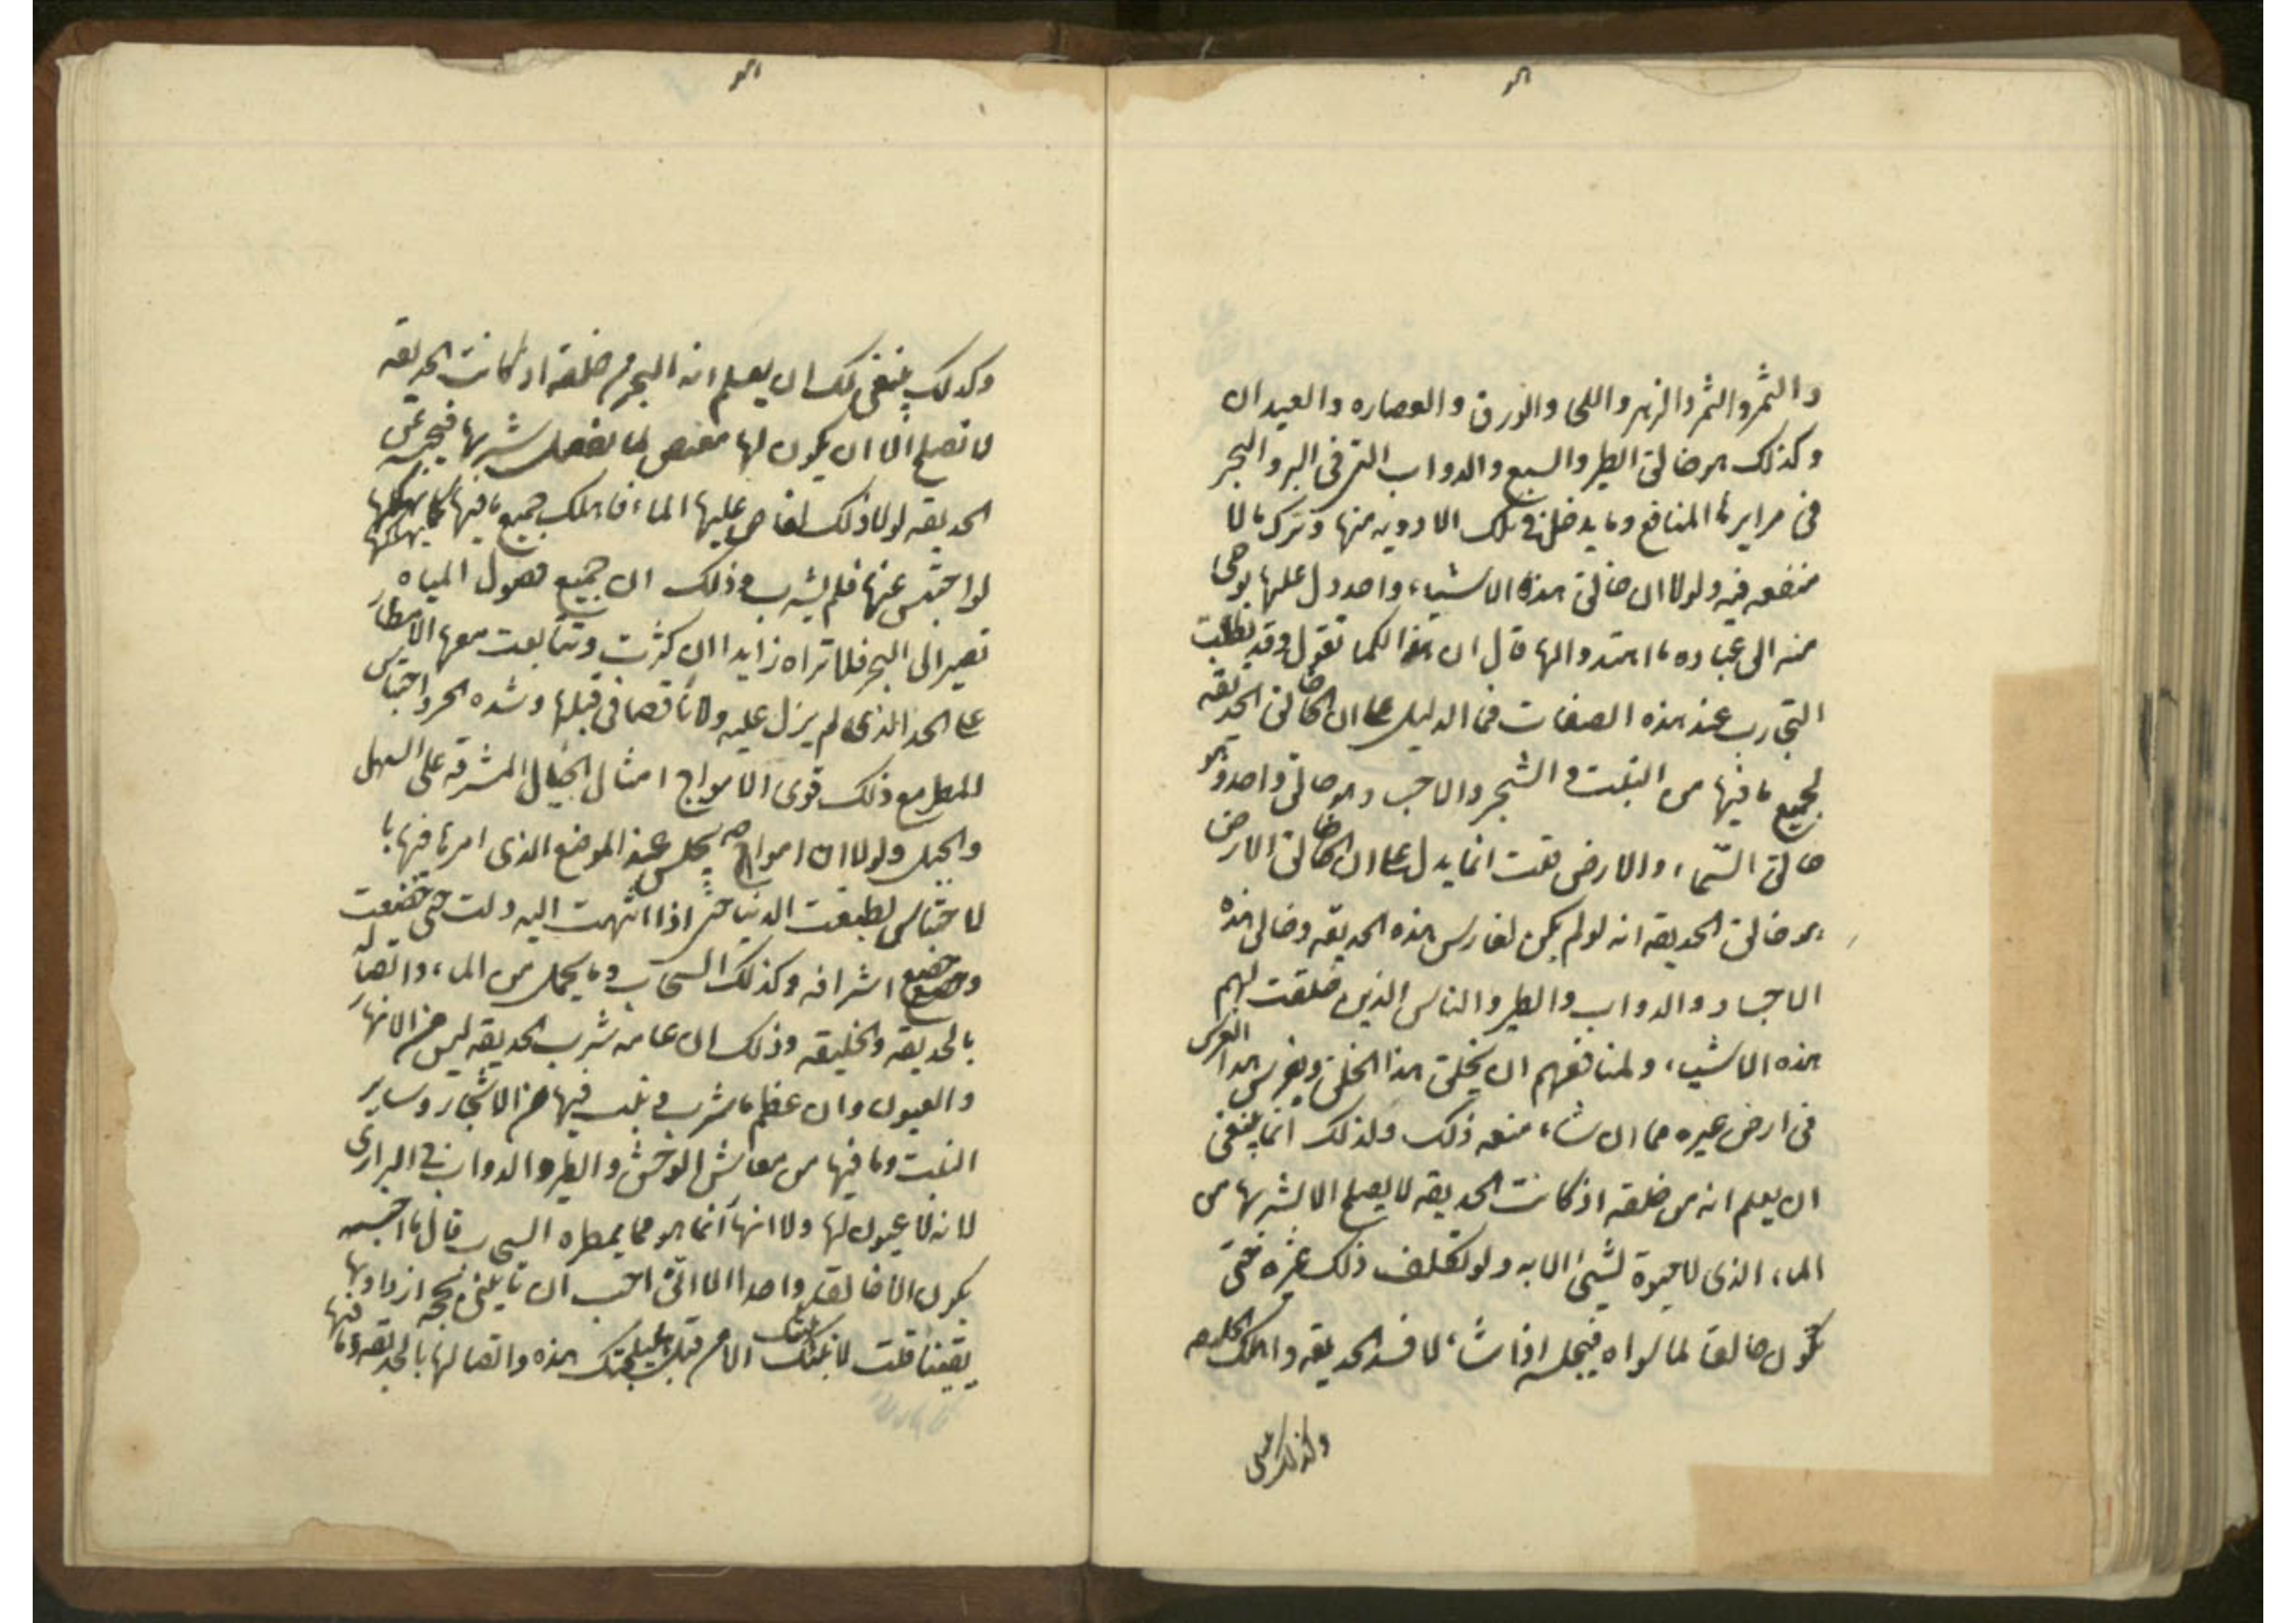 هو
والثمر والثمر والزهر واللحى والورق والعصاره والعيدان
وكذلك هو خالق الطير والسبع والدواب التى فى البر والبحر
فى مرايرها المنافع وما يدخل فى تلك الادويه منها وترك ما لا
منفعه فيه ولولا ان خالق هذه الاشياء واحد دل عليها بوحى
منه الى عباده ما اهتدوا لها قال ان هذا لكما تقول وقد بطلت
التجارب عند هذه الصفات فما الدليل على ان خالق الحديقه
لجميع ما فيها من النبت والشجر والاحب وهو خالق واحد وهو
خالق السّماء والارض قلت انما يدل على ان خالق الارض
هو خالق الحديقه انه لو لم يكن لغارس هذه الحديقه وخالق هذه
الاجساد والدواب والطير والناس الذين خلقت لهم
هذه الاشياء ولمنافعهم ان يخلق هذا الخلق ويغرس هذا الغرس
فى ارض غيره مما ان شاء منعه ذلك ولذلك انما ينبغى
ان يعلم انه من خلقه اذ كانت الحديقه لا يصلح الا لشربها من
الماء الذى لا حيوة لشىء الا به ولو تكلف ذلك غيره حتى
تكون خالقا لما سواه فيحبسه اذا شاء لافسد الحديقه واهلك
وكذلك ينبغى
هو
وكذلك ينبغى لك ان يعلم انه البحر من خلقه اذ كانت الحديقه
لا تصلح الا ان يكون لها مغيض لما يفضل شربها فيحبسه عن
الحديقه لولا ذلك لفاض عليها الماء فاهلك جميع ما فيها كما يهلكها
لو احتبس عنها فلم يشرب وذلك ان جميع فضول المياه
تصير الى البحر فلا تراه زايدا ان كثرت وتتابعت معها الامطار
على الحد الذى لم يزل عليه ولا ناقصا فى قبلها وشده الحر واحتباس
المطر مع ذلك قوى الامواج امثال الجبال المشرقه على السهل
والجبل ولولا ان امواجه يحبس عند الموضع الذى امرها فيها با
لاحتباس لطبقت الدنيا حتى اذا انتهت اليه ذلت حتى خضعت
وخضع اشرافه وكذلك السحاب وما يحمل من الماء واتصاله
بالحديقه والخليقه وذلك ان عامه شرب الحديقه ليس من الانهار
والعيون وان عظم ما شرب وينبت فيها من الاشجار وساير
النبت وما فيها من معايش الوحش والطير والدواب فى البرارى
لانه لا عيون لها ولا انهار انما هو مما يمطره السحاب قال ما احسبه
يكون الا خالقا واحدا الا انّى احب ان تايتنى بحجه ازداد بها
يقينا قلت لاتينك الامر قبل بحجتك هذه واتصالها بالحديقه وما فيها